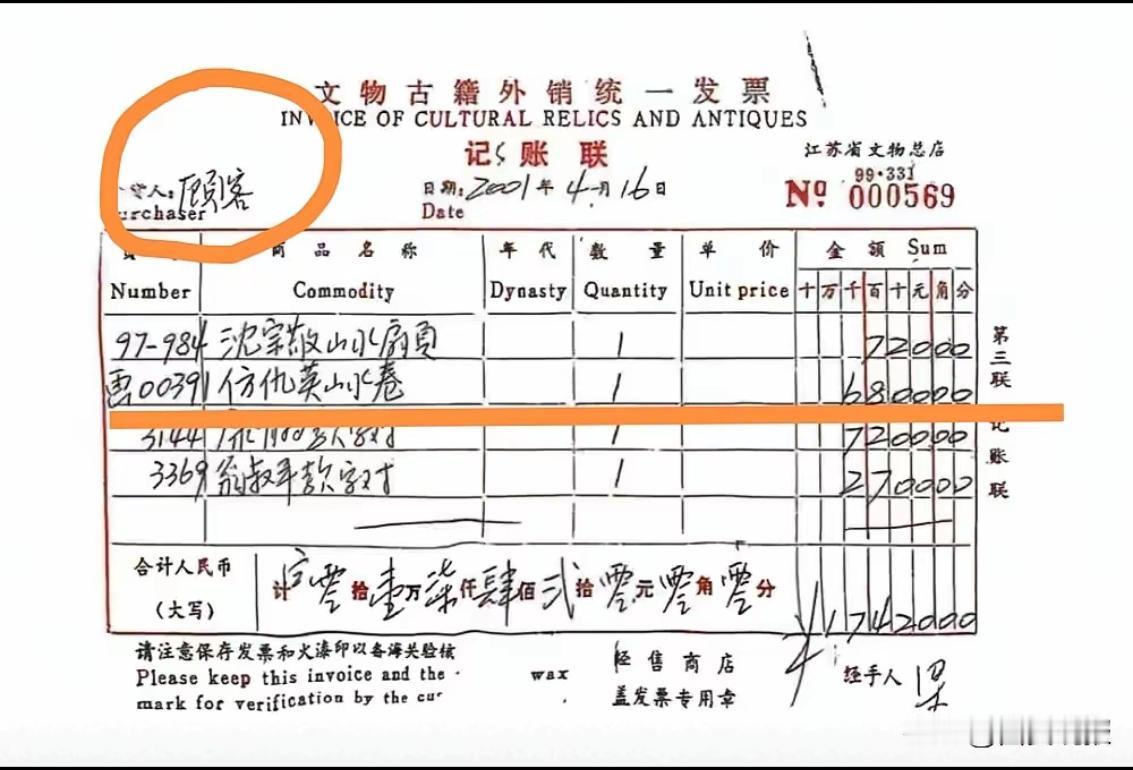 文物古籍外销统一发票
INVOICE OF CULTURAL RELICS AND ANTIQUES
记账联
江苏省文物总店
99·331
货人:顾客
urchaser
日期:2001年4月16日
Date
Nº 000569
商品名称 年代 数量 单价 金额 Sum
Number Commodity Dynasty Quantity Unit price 十万千百十元角分
97-984 沈宗敬山水扇页 1 72000
画00391 仿仇英山水卷 1 680000
3144 1 720000
3369 翁叔平款字对 1 270000
第三联 记账联
合计人民币
(大写)
计 零拾壹万柒仟肆佰贰拾零元零角零分 1742000
请注意保存发票和火漆印以备海关验核
Please keep this invoice and the wax
mark for verification by the cu
经售商店
盖发票专用章
经手人